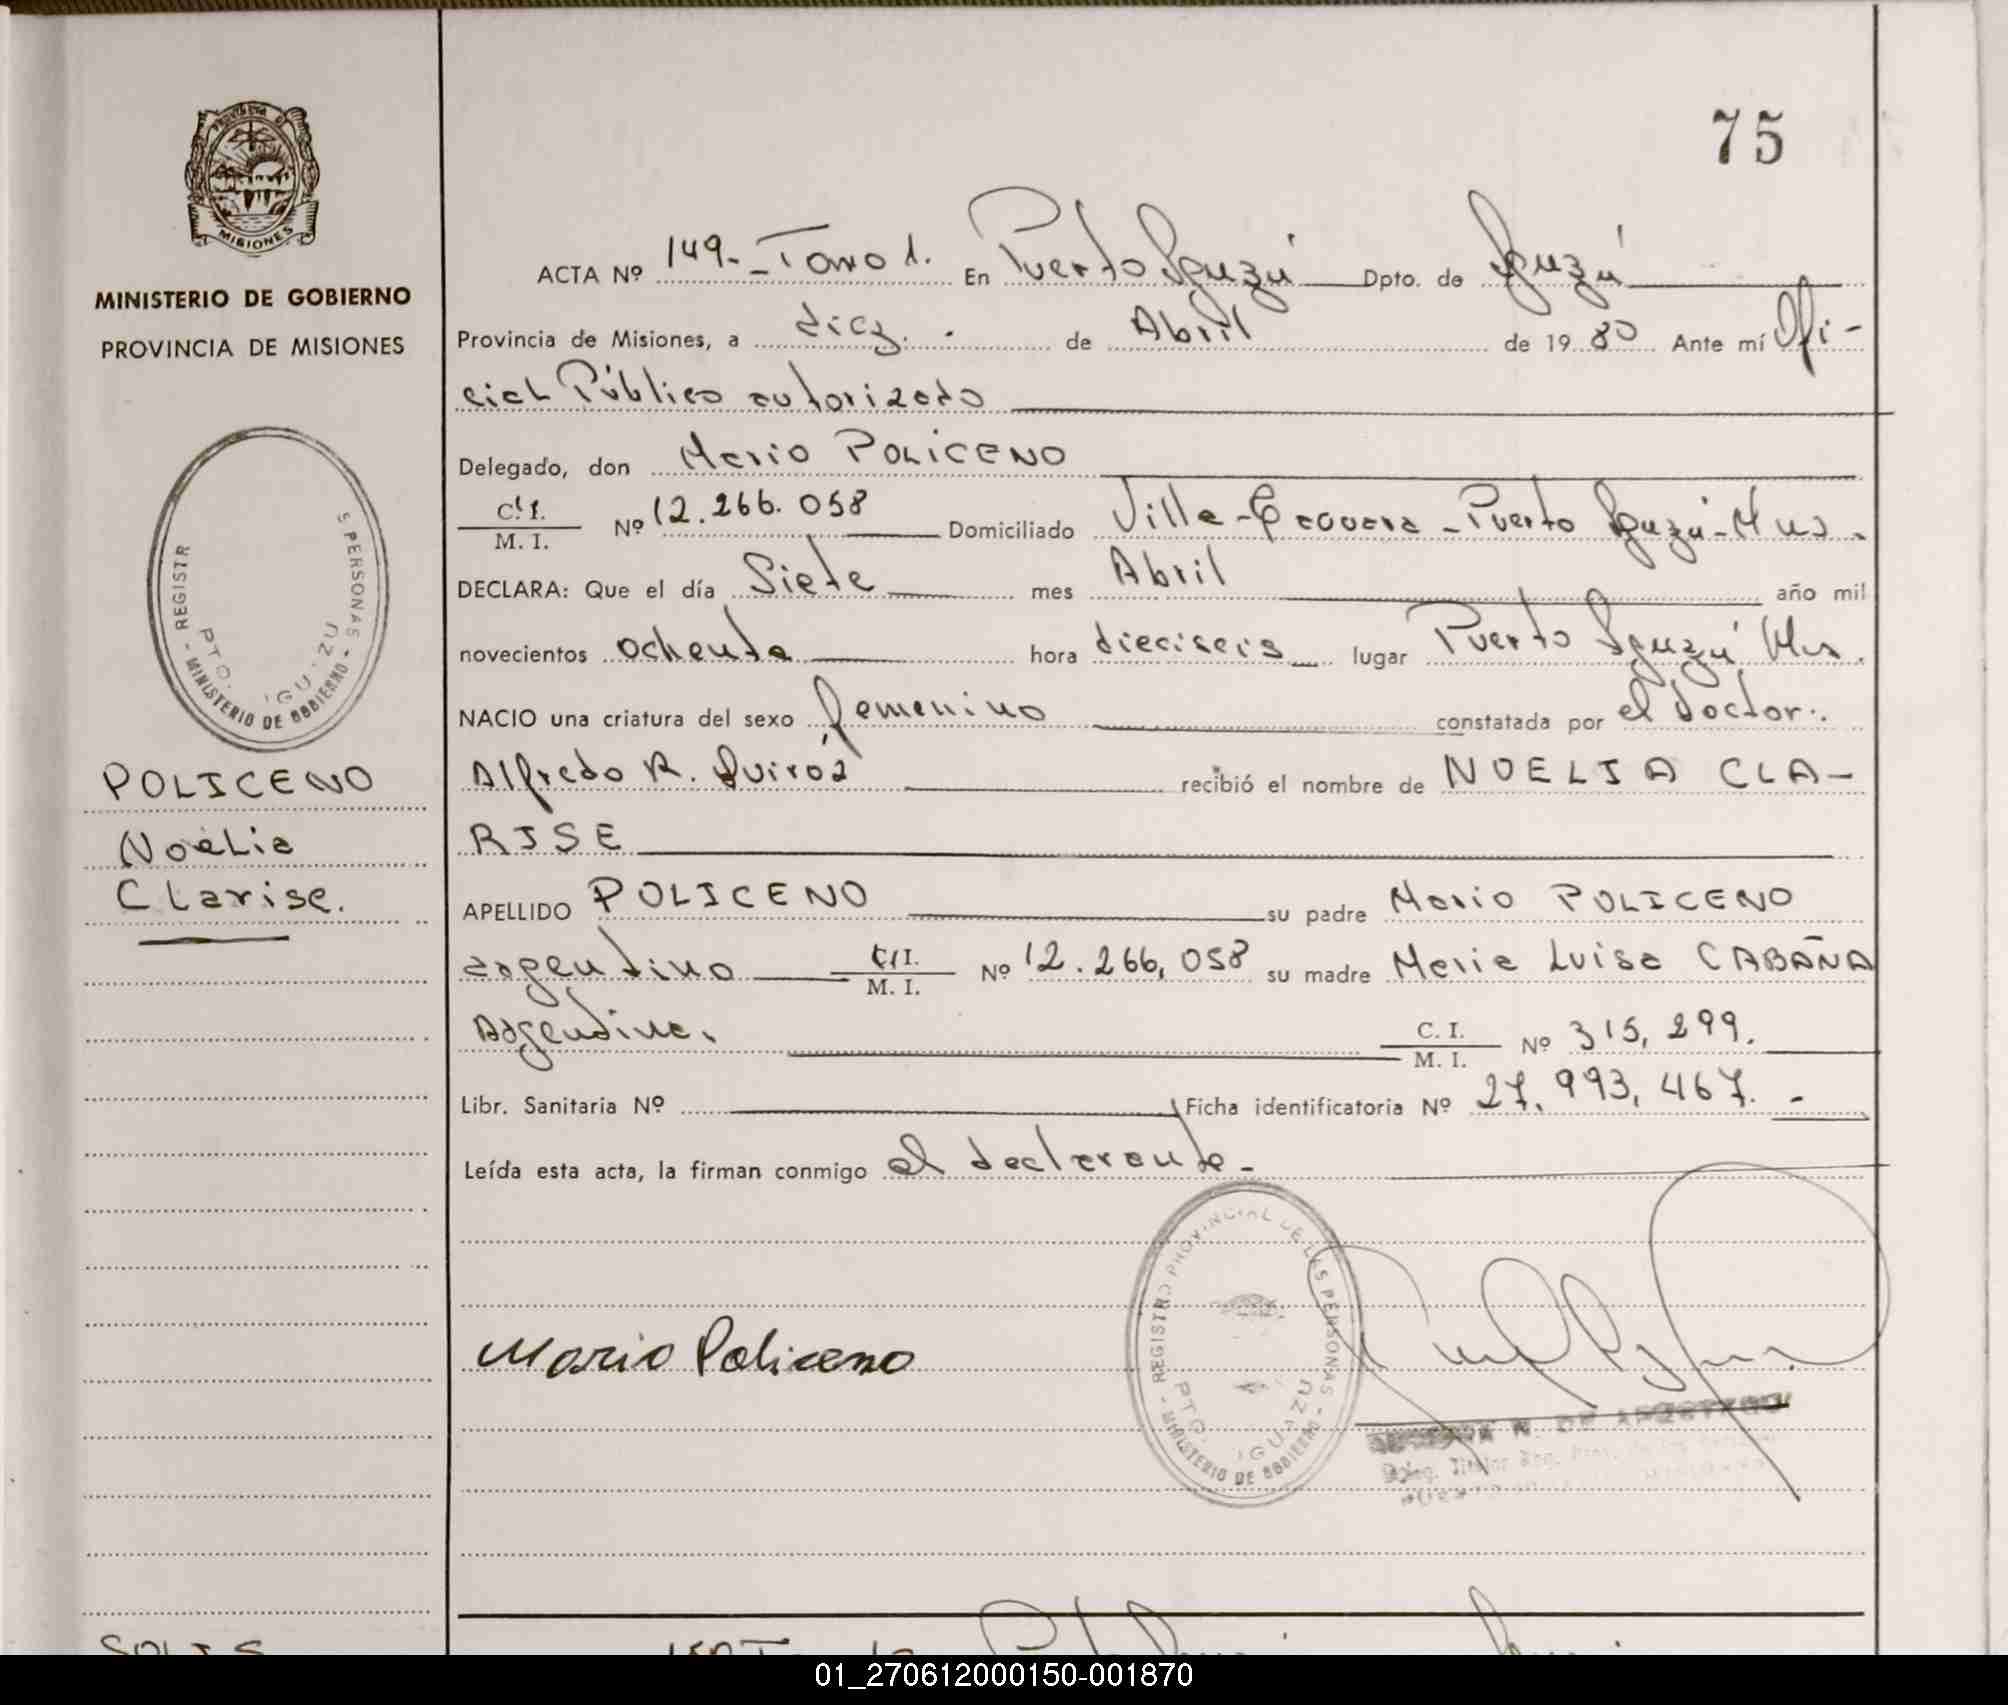 PROVINCIA DE
MISIONES
MINISTERIO DE GOBIERNO
PROVINCIA DE MISIONES
REGISTR
S PERSONAS -
PTO. IGUAZU
- MINISTERIO DE GOBIERNO -
POLICENO
Noelia
Clarise.
75
ACTA Nº 149.- Tomo 1. En Puerto Iguazú Dpto. de Iguazú
Provincia de Misiones, a diez. de Abril de 1980 Ante mí Ofi-
cial Público autorizado
Delegado, don Mario POLICENO
C. I.
M. I. Nº 12.266.058 Domiciliado Villa - Puerto Iguazú - Mns.
DECLARA: Que el día Siete mes Abril año mil
novecientos ochenta hora dieciseis lugar Puerto Iguazú Mns.
NACIO una criatura del sexo femenino constatada por el doctor.
Alfredo R. Quiróz recibió el nombre de NOELIA CLA-
RISE
APELLIDO POLICENO su padre Mario POLICENO
argentino C. I.
M. I. Nº 12.266,058 su madre Maria Luisa CABAÑA
Argentina. C. I.
M. I. Nº 315,299.
Libr. Sanitaria Nº Ficha identificatoria Nº 27,993,467. -
Leída esta acta, la firman conmigo el declarante -
REGISTRO PROVINCIAL DE LAS PERSONAS -
PTO. IGUAZU
- MINISTERIO DE GOBIERNO -
Mario Policeno
SOLIS
01_270612000150-001870